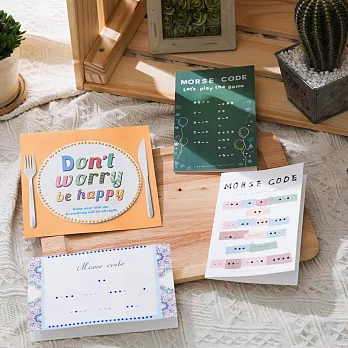 MORSE CODE
Let's play the game
Don't
worry
be happy
MORSE CODE
Morse code